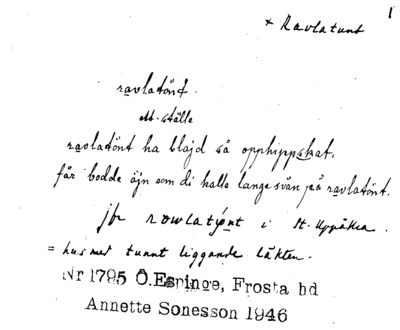 + Ravlatunt
1
ravlatönt.
M-ställe
ravlatönt ha blajd så opphippskat.
får bodde äjn som di kalle lange svän på ravlatönt.
jfr rowlatjønt i St. Uppåkra.
= hus med tunnt liggande läkten.
Nr 1795 Ö.Espinge, Frosta hd
Annette Sonesson 1946